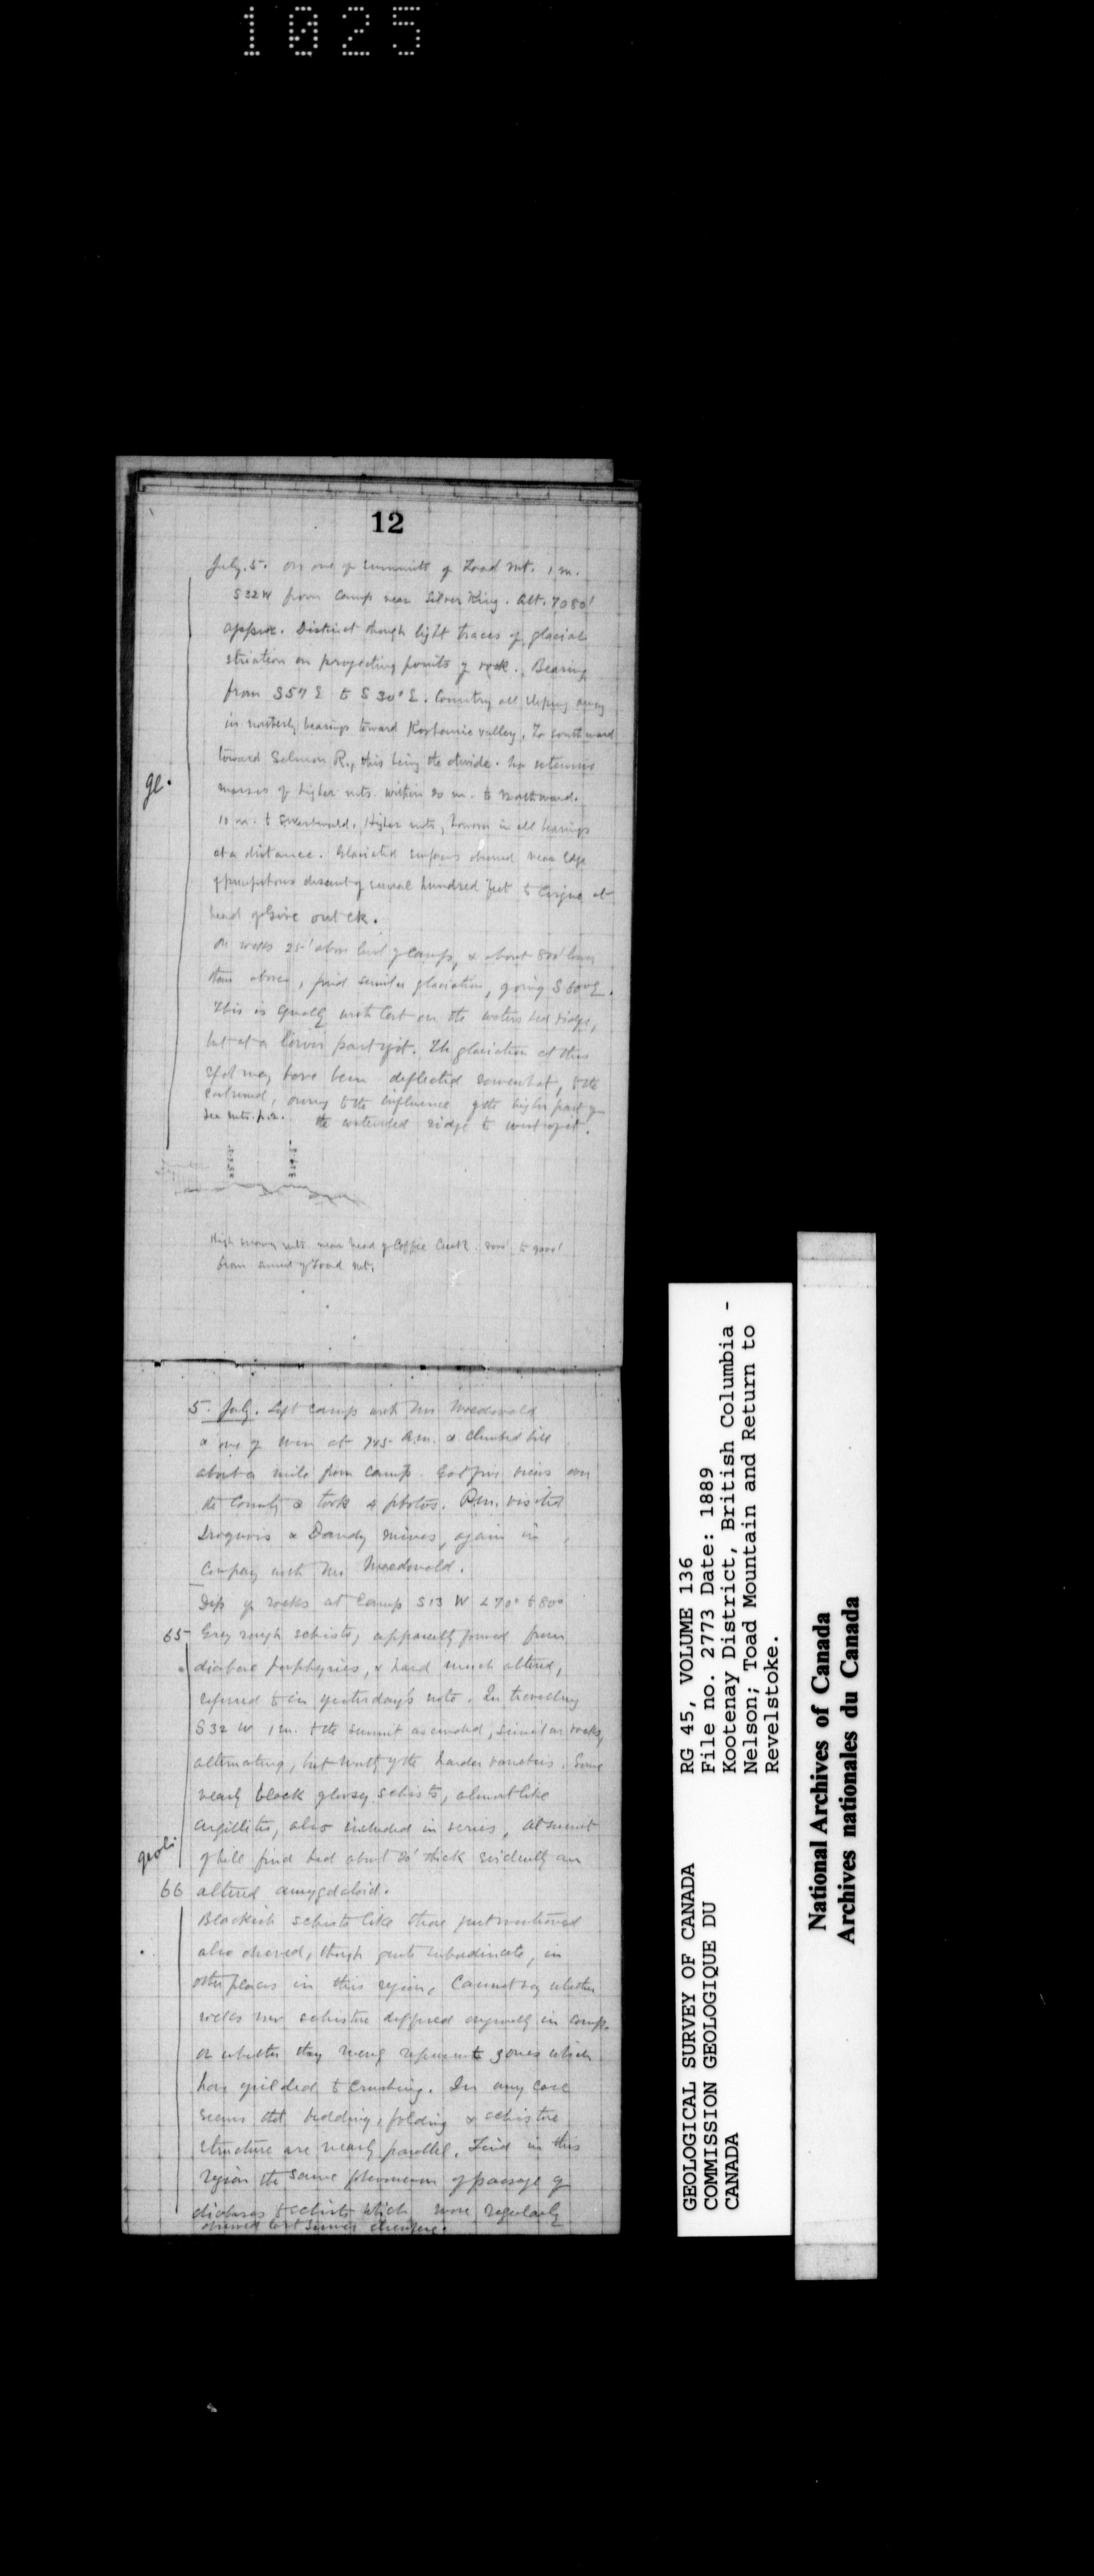 1025
12
July. 5. On one of summits of Toad Mt. 1 m.
S32W from Camp near Silver King. Alt. 7080'
approx. Distinct though light traces of glacial
striation on projecting points of rock. Bearing
from S57E to S30°E. Country all sloping away
in northerly bearings toward Kootanie valley, To southward
toward Salmon R., this being the divide. No extensive
masses of higher mts. within 20 m. to northward.
10 m. to southward. Higher mts, however in all bearings
at a distance. Glaciated surfaces observed near edge
of precipitous descent of several hundred feet to Cirque at
head of Give out ck.
gl.
On rocks 25' above level of camp, & about 800' lower
than above, find similar glaciation, going S60°E.
This is equally with last on the watershed ridge,
but at a lower part of it. The glaciation at this
spot may have been deflected somewhat, to the
eastward, owing to the influence of the higher part of
the watershed ridge to west of it.
High snowy mts near head of Coffee Creek. to 9000'
from summit of Toad Mt.
5. July. Left camp with Mr Macdonald
& one of men at 745 A.m. & climbed hill
about a mile from camp. Got fine views over
the Country & took 4 photos. P.m. visited
Iroquois & Dandy mines, again in
Company with Mr Macdonald.
Dip of rocks at Camp S13 W <70° to 80°
65 Grey rough schists, apparently formed from
diabase porphyries, & hard much altered,
referred to in yesterday's note. In travelling
S32 W 1 m. to the summit ascended, similar rocks,
alternating, but mostly of the harder varieties. Some
nearly black glossy schists, almost like
argillites, also included in series, At summit
geol. of hill find bed about 20' thick evidently an
66 altered amygdaloid.
Blackish schists like those just mentioned
also observed, though quite subordinate, in
other places in this region, Cannot say whether
rocks now schistose differed originally in comp.
or whether they merely represent zones which
have yielded to crushing. In any case
seems that bedding, folding & schistose
structure are nearly parallel. Find in this
region the same phenomenon of passage of
diabases to schists which more regularly
observed last summer elsewhere.
GEOLOGICAL SURVEY OF CANADA
COMMISSION GEOLOGIQUE DU
CANADA
RG 45, VOLUME 136
File no. 2773 Date: 1889
Kootenay District, British Columbia -
Nelson; Toad Mountain and Return to
Revelstoke.
National Archives of Canada
Archives nationales du Canada